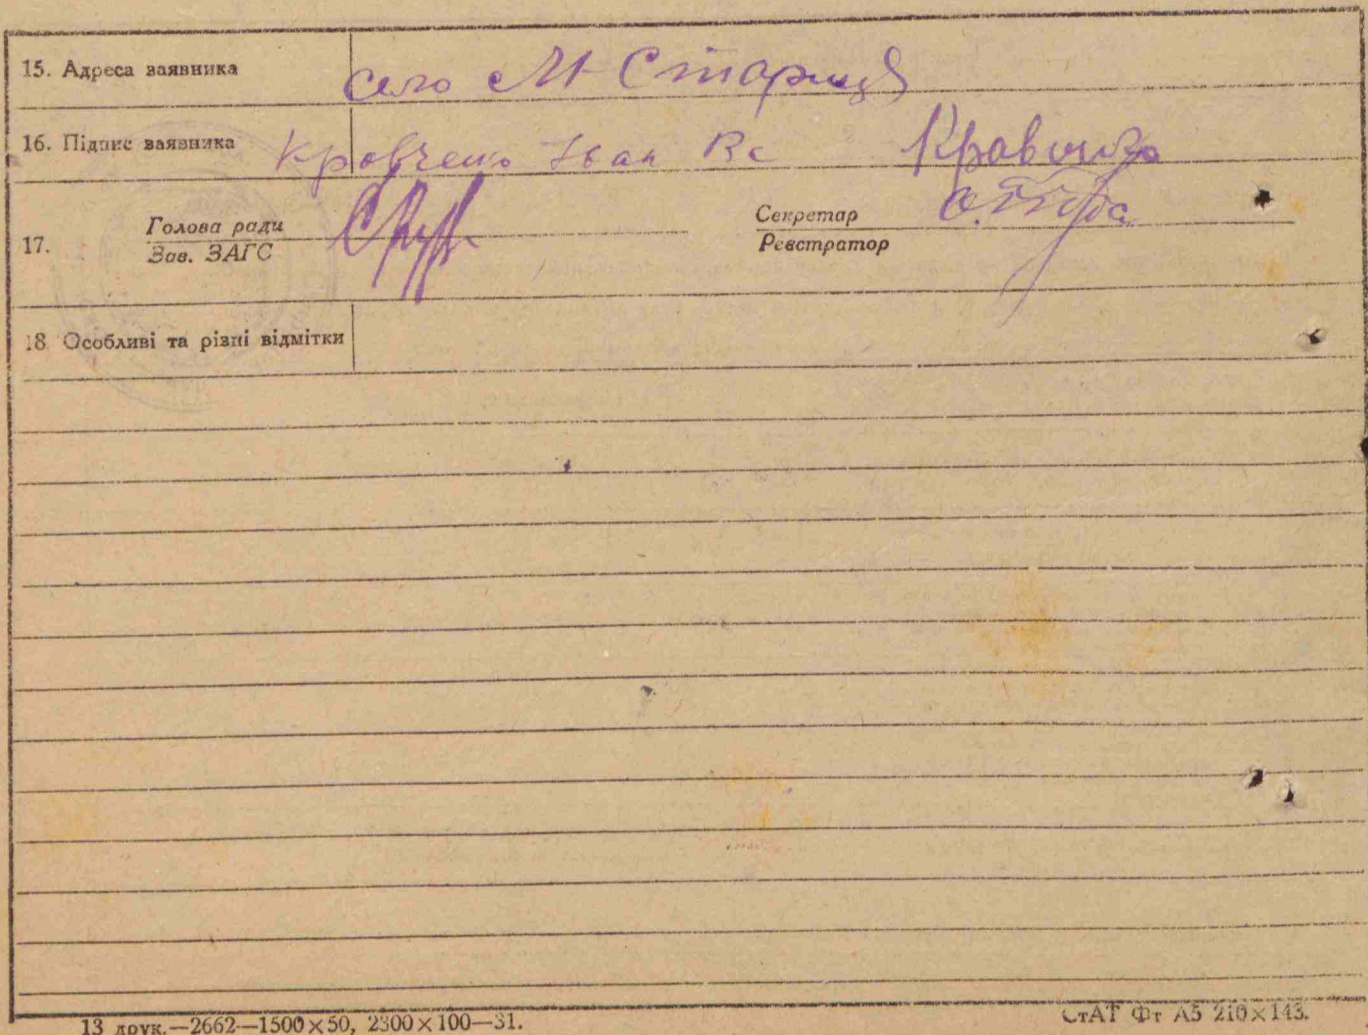 15. Адреса заявника село М-Стариця
16. Підпис заявника Кровченко Іван Вс Кравченко
17. Голова ради Секретар
Зав. ЗАГС Реєстратор
18 Особливі та різні відмітки
13 друк.—2662—1500×50, 2300×100—31. СтАТ Фт А5 210×143.